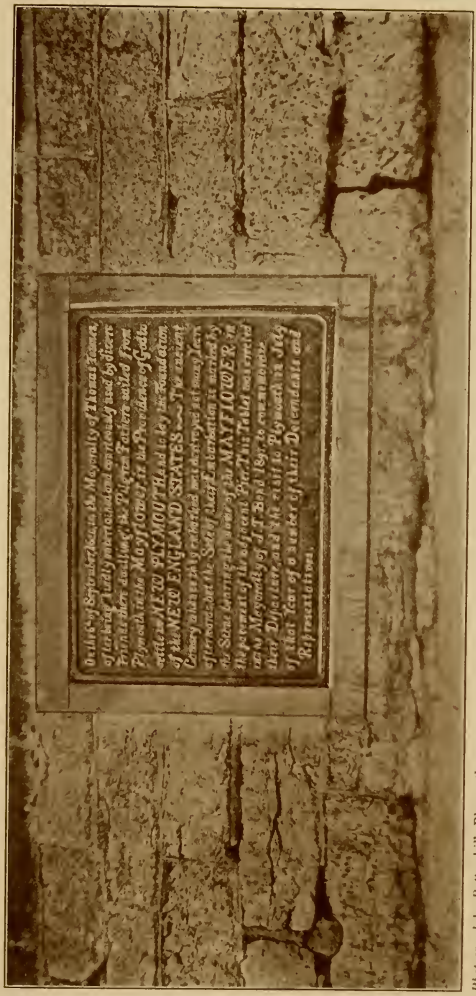 On the 6th of September 1620 in the Mayoralty of Thomas Townes
after being kindly entertained and courteously used by divers
Friends there dwelling, the Pilgrim Fathers sailed from
Plymouth in the Mayflower, in the Providence of God to
settle in NEW PLYMOUTH, and to lay the Foundation
of the NEW ENGLAND STATES The ancient
Cawsey whence they embarked was destroyed not many Years
afterwards, but the Site of their Embarkation is marked by
the Stone bearing the name of the MAYFLOWER in
the pavement of the adjacent Pier. This Tablet was erected
in the Mayoralty of J.T. Bond 1891, to commemorate
their Departure, and the visit to Plymouth in July
of that Year of a number of their Descendants and
Representatives.